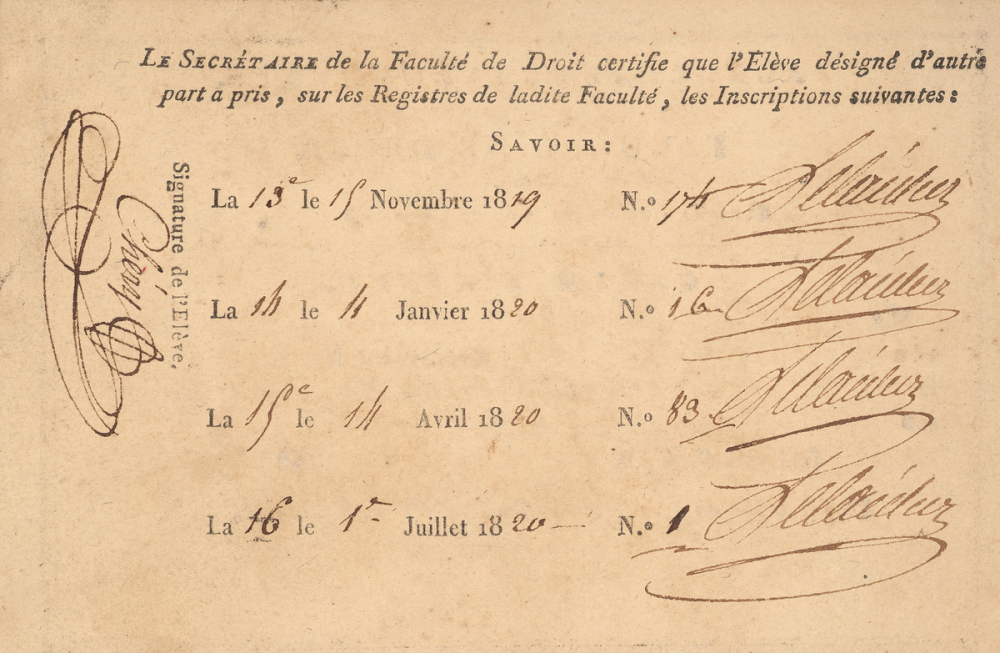 LE SECRÉTAIRE de la Faculté de Droit certifie que l'Elève désigné d'autre
part a pris, sur les Registres de ladite Faculté, les Inscriptions suivantes:
SAVOIR:
La 13e le 15 Novembre 1819 N.o 174
La 14 le 4 Janvier 1820 N.o 16
La 15e le 14 Avril 1820 N.o 83
La 16 le 1er Juillet 1820 N.o 1
Signature de l'Elève.
Chéry